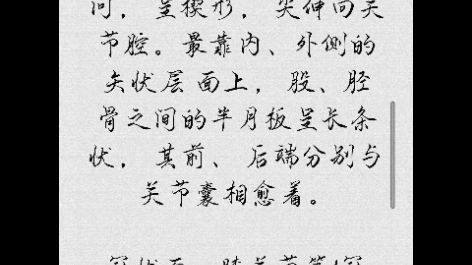 间，呈楔形，尖伸向关
节腔。最靠内、外侧的
矢状层面上，股、胫
骨之间的半月板呈长条
状，其前、后端分别与
关节囊相愈着。